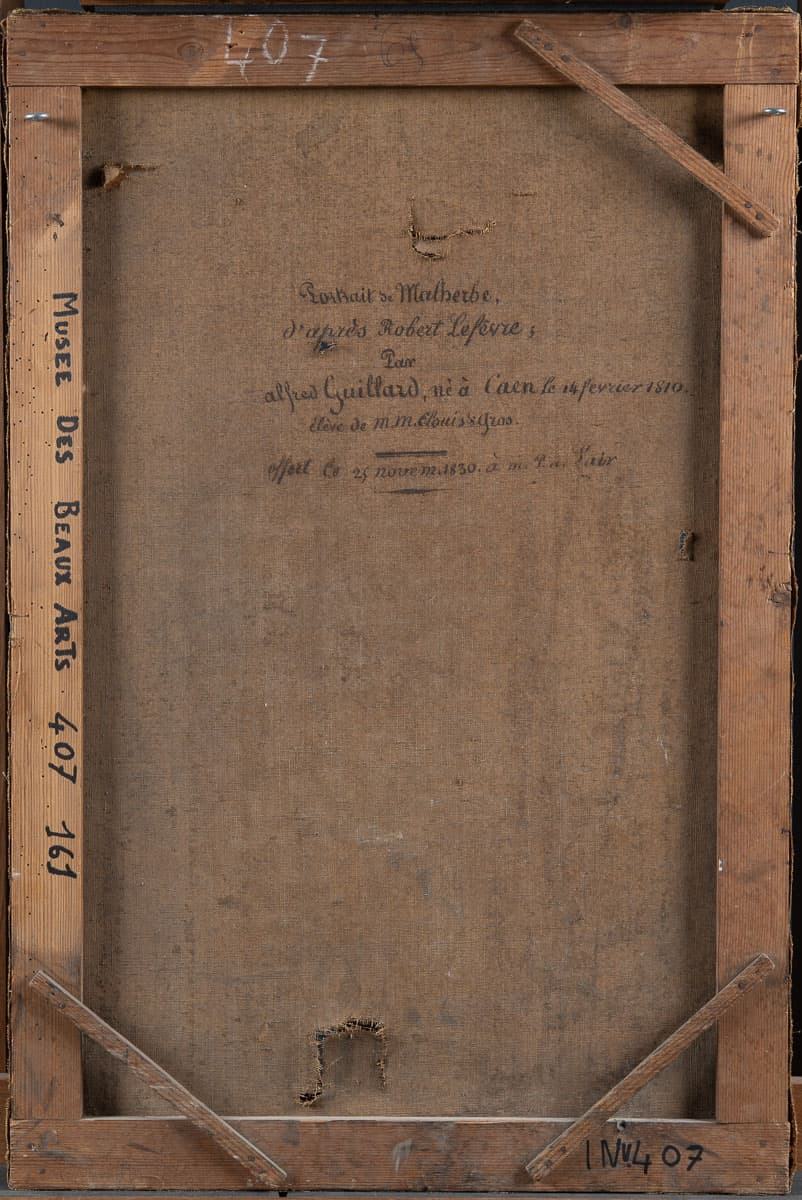 407 68
Portrait de Malherbe,
d'après Robert Lefèvre;
Par
alfred Guillard, né à Caen le 14 fevrier 1810.
élève de m.m. Elouis & Gros.
offert le 25 novem. 1830. à m. P. a. Lair
MUSEE DES BEAUX ARTS 407 161
INV 407